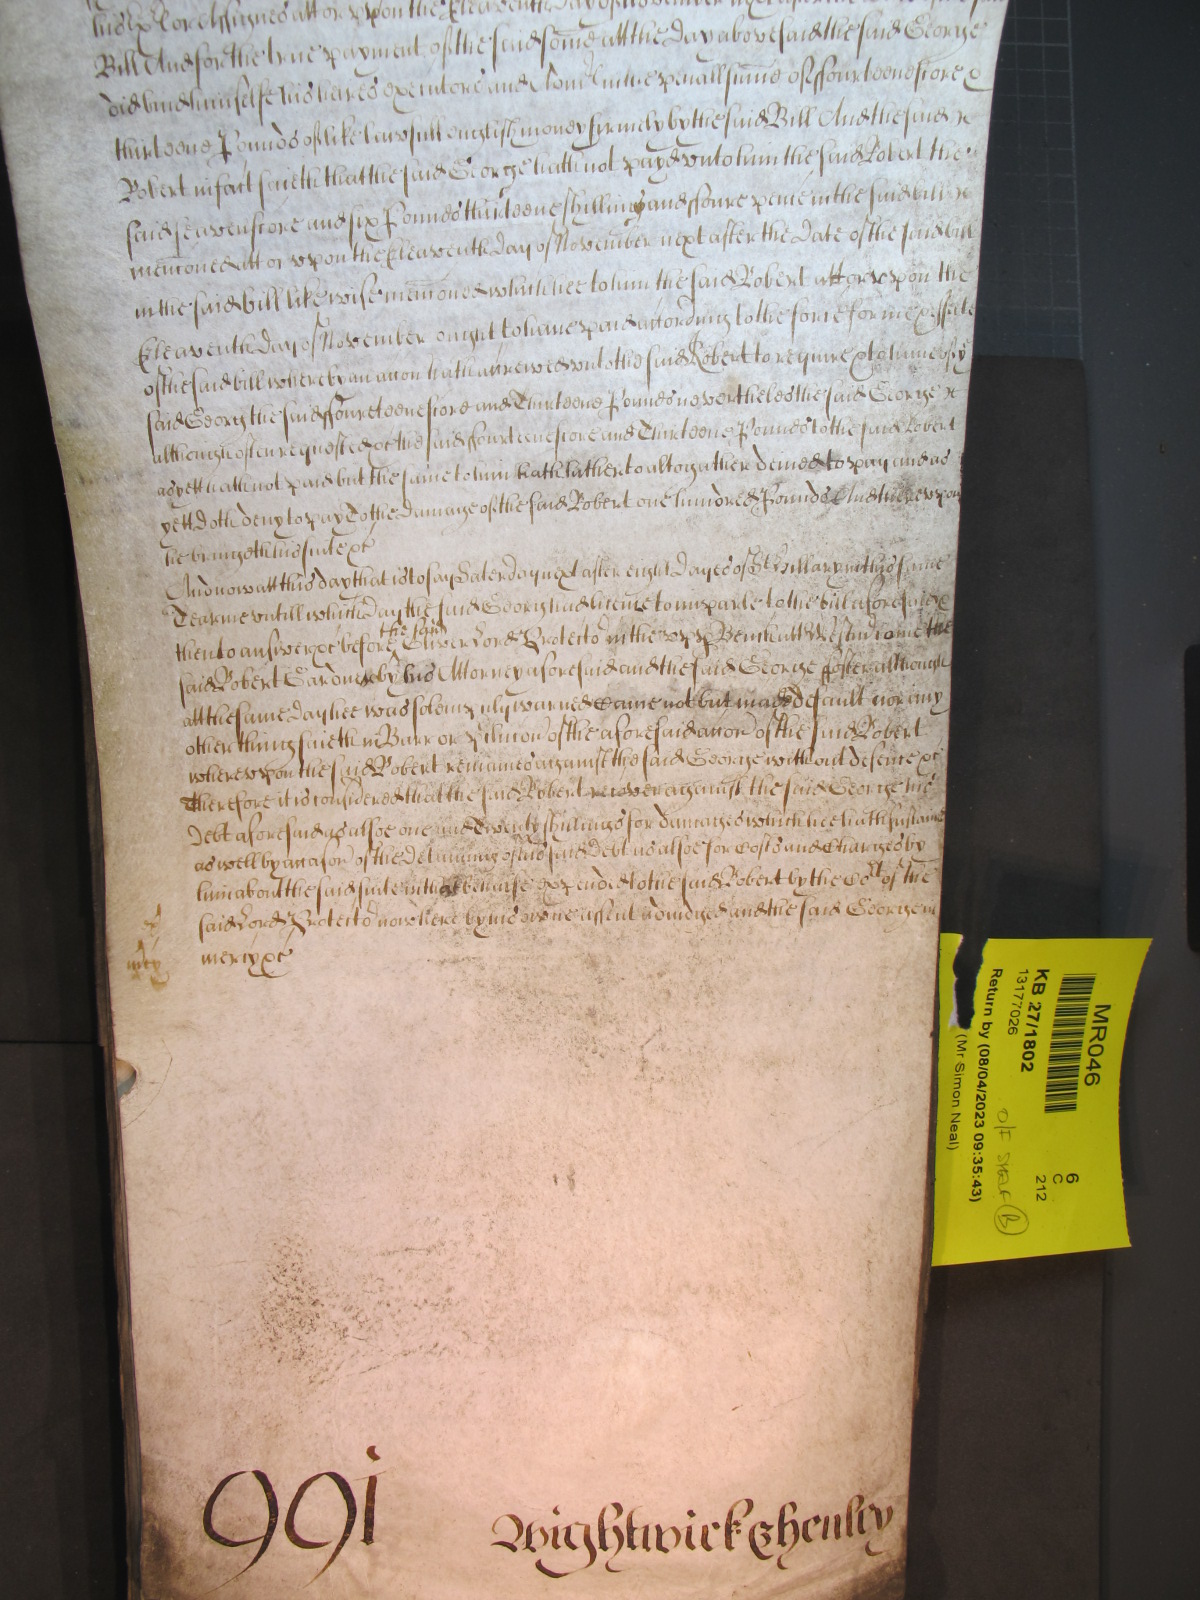 his Exec or Assignes att or vpon the Eleaventh Day of November next after the
Bill And for the true payment of the said some att the Day abovesaid the said George
did bind himselfe his heires executors and Admrs in the penall summe of ffourteene score &
thirteene Pounds of like lawfull english money firmely by the said Bill And the said
Robert in fact saieth that the said George hath not payd vnto him the said Robert the
said seaven score and six Pounds thirteene shillings and ffoure pence in the said bill
menconed att or vpon the Eleaventh Day of November next after the Date of the said bill
in the said bill likewise menconed which hee to him the said Robert att or vpon the
Eleaventh Day of November ought to have paid according to the force forme & effecte
of the said bill whereby an accon hath accrewed vnto the said Robert to require & to have of ye
said George the said ffoureteene score and Thirteene Pounds neverthelesse the said George
although often requested &c the said ffourteene score and Thirteene Pounds to the said Robert
as yett hath not paid but the same to him hath hitherto altogather denied to pay and as
yett doth deny to pay To the Damage of the said Robert one hundred Pounds And therevpon
he bringeth his suite &c
And now att this day that is to say Saterday next after eight Dayes of St Hillary in this same
Tearme vntill which Day the said George had licence to imparle to the bill aforesaid &
then to answer &c before the said Oliver Lord Protector in the vpp Bench att Westm came the
said Robert Gardner by his Attorney aforesaid and the said George ffoster although
att the same Day hee was solempnly warned came not but made default nor any
other thing saieth in Barr or P'clusion of the aforesaid accon of the said Robert
wherevpon the said Robert remaines against the said George without defence &c
Therefore it is considered that the said Robert recover against the said George his
Debt aforesaid as alsoe one and Twenty shillings for damages which hee hath sustained
as well by occasion of the detaining of his said Debt as alsoe for Costs and Charges by
him about the said suite in that behalfe expended to the said Robert by the Cort of the
said Lord Protector now here by his owne assent adiudged and the said George in
mercy &c
mcy
991
Wightwick & henley
MR046
KB 27/1802
13177026
Return by (08/04/2023 09:35:43)
(Mr Simon Neal)
6
C
212
O/F SHELF B